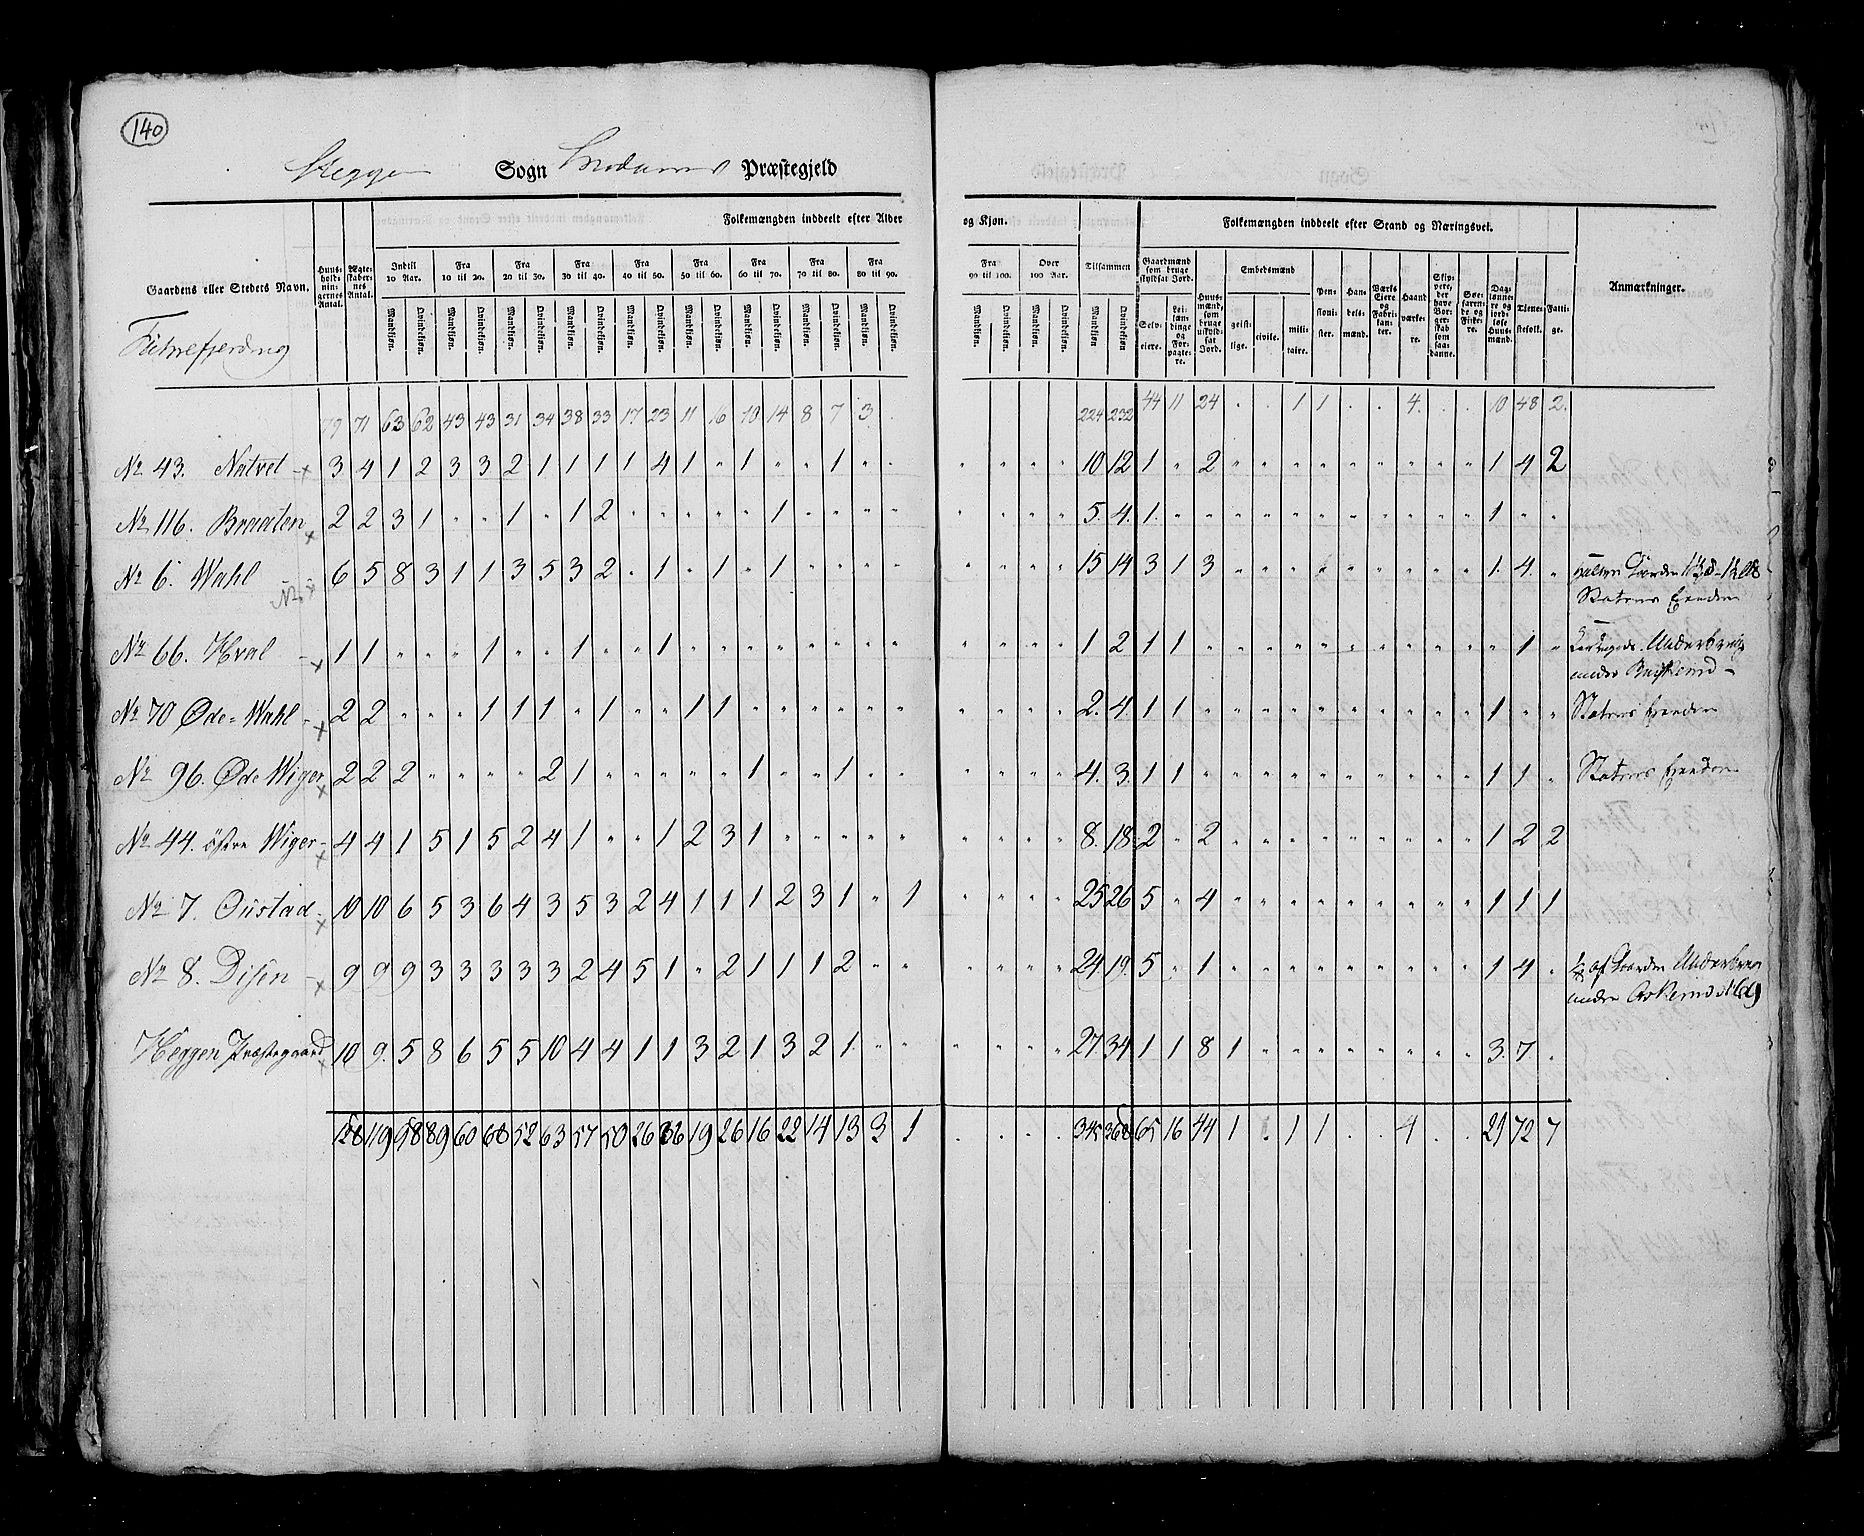 140
Heggen Sogn Modums Præstegjeld
Folkemængden inddeelt efter Alder og Kjøn.
Folkemængden inddeelt efter Stand og Næringsvei.
Gaardens eller Stedets Navn.
Huusholdningernes Antal.
Ægteskabernes Antal.
Indtil 10 Aar.
Fra 10 til 20.
Fra 20 til 30.
Fra 30 til 40.
Fra 40 til 50.
Fra 50 til 60.
Fra 60 til 70.
Fra 70 til 80.
Fra 80 til 90.
Fra 90 til 100.
Over 100 Aar.
Tilsammen
Mandkiøn. Qvindekiøn. Mandkiøn. Qvindekiøn. Mandkiøn. Qvindekiøn. Mandkiøn. Qvindekiøn. Mandkiøn. Qvindekiøn. Mandkiøn. Qvindekiøn. Mandkiøn. Qvindekiøn. Mandkiøn. Qvindekiøn. Mandkiøn. Qvindekiøn. Mandkiøn. Qvindekiøn. Mandkiøn. Qvindekiøn. Mandkiøn Qvindekiøn.
Gaardmænd som bruge skyldsat Jord.
Selveiere.
Leilændinge og Forpagtere.
Huusmænd, som bruge uskyldsat Jord.
Embedsmænd
geistlige.
civile.
militaire.
Pensionister.
Handelsmænd.
Værks Eiere og Fabrikanter.
Haandværkere.
Skippere, der have Borgerskab som saadanne.
Søefarende og Fiskere.
Daglønnere og jordløse Huusmænd.
Tienestefolk.
Fattige.
Anmærkninger.
79 71 63 62 43 43 31 34 38 33 17 23 11 16 10 14 8 7 3 224 232 44 11 24 . . 1 1 . . 4. . . 10 48 2.
No 43. Natvet 3 4 1 2 3 3 2 1 1 1 1 4 1 " 1 " " 1 " " " " " " 10 12 1 " 2 " " " " " " " " " 1 4 2
No 116. Braaten 2 2 3 1 " " 1 " 1 2 " " " " " 1 " " " " " " " " 5. 4. 1. " " " " " " " " " " " 1 " "
No 6. Wahl 6 5 8 3 1 1 3 5 3 2 " 1 " 1 " 1 " " " " " " " " 15 14 3 1 3 " " " " " " " " " 1. 4. "
Statens Eiendom
No 66. Hval 1 1 " " " 1 " " 1 " " 1 " " " " " " " " " " " " 1 2 1 1 " " " " " " " " " " " 1 "
Underbrug
under
No 70 Øde=Wahl 2 2 " " " 1 1 1 " 1 " " 1 1 " " " " " " " " " " 2. 4. 1 1 " " " " " " " " " " 1 " " Statens Eiendom
No 96. Øde Wiger 2 2 2 " " " " 2 1 " " " " " 1 " " 1 " " " " " " 4. 3. 1 1 " " " " " " " " " " 1 1 " Statens Eiendom
No 44. östre Wiger 4 4 1 5 1 5 2 4 1 " " 1 2 3 1 " " " " " " " " " 8. 18 2 " 2 " " " " " " " " " 1 2 2
No 7. Oustad 10 10 6 5 3 6 4 3 5 3 2 4 1 1 1 2 3 1 " 1 " " " " 25 26 5 " 4 " " " " " " " " " 1 1 1
No 8. Disen 9 9 9 3 3 3 3 3 2 4 5 1 " 2 1 1 1 2 " " " " " " 24 19. 5 " 1 " " " " " " " " " 1 4 "
af Gaarden Underbrug
under
Heggen Præstegaard 10 9. 5 8 6 5 5 10 4 4 1 1 3 2 1 3 2 1 " " " " " " 27 34 1 1 8 1 " " " " " " " " 3. 7. "
128 119 98 89 60 68 52 63 57 50 26 36 19 26 16 22 14 13 3 1 . . . . 345 368 65 16 44 1 . 1 1 . . 4 . . 21 72 7